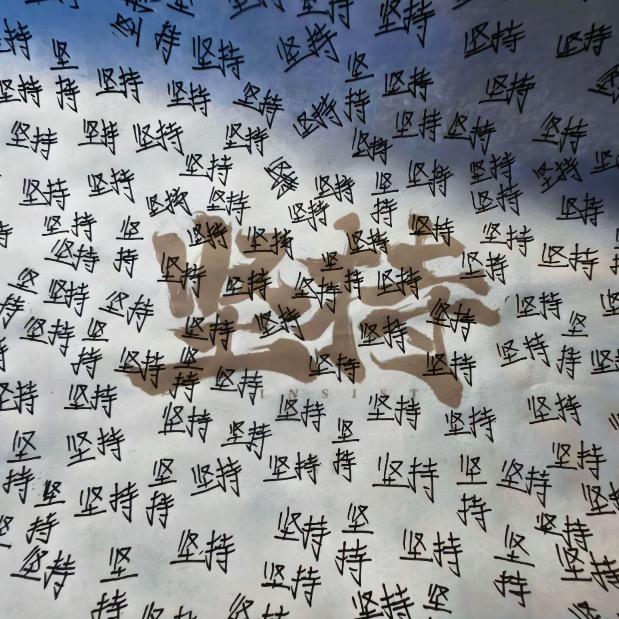 坚持 坚持 坚持
坚持 坚持 坚持 坚持 坚持 坚持 坚持 坚持
坚持 坚持 坚持 坚持 坚持 坚持
坚持 坚持 坚持 坚持 坚持 坚持 坚持 坚持 坚持
坚持 坚持 坚持 坚持 坚持
坚持 坚持 坚持 坚持 坚持 坚持 坚持 坚持
坚持 坚持 坚持 坚持 坚持 坚持 坚持 坚持
坚持 坚持 坚持 坚持
坚持
INSIST
坚持 坚持 坚持 坚持 坚持 坚持
坚持 坚持 坚持
坚持 坚持 坚持 坚持 坚持 坚持
坚持 坚持 坚持 坚持 坚持 坚持
坚持 坚持 坚持 坚持 坚持 坚持
坚持 坚持 坚持 坚持
坚持 坚持 坚持
坚持 坚持 坚持 坚持 坚持 坚持 坚持
坚持 坚持
坚持 坚持 坚持
坚持 坚持 坚持 坚持 坚持 坚持
坚持
坚持 坚持